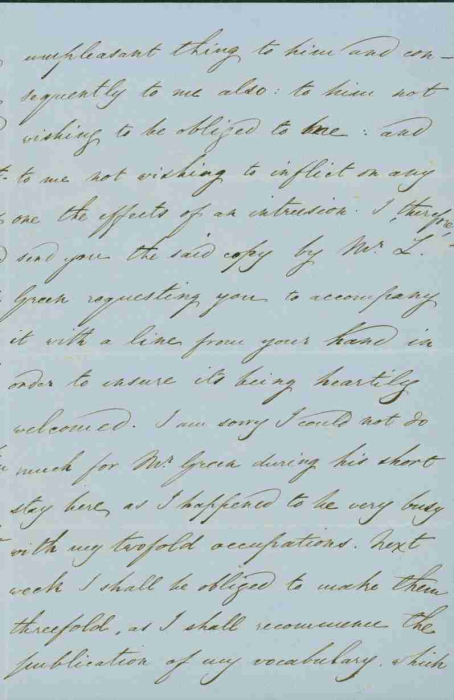 unpleasant thing to him and con-
sequently to me also: to him not
wishing to be obliged to me: and
to me not wishing to inflict on any
one the effects of an intrusion. I, therefore,
send you the said copy by Mr. L.
Green requesting you to accompany
it with a line from your hand in
order to insure its being heartily
welcomed. I am sorry I could not do
much for Mr. Green during his short
stay here, as I happened to be very busy
with my twofold occupations. Next
week I shall be obliged to make them
threefold, as I shall recommence the
publication of my vocabulary, which